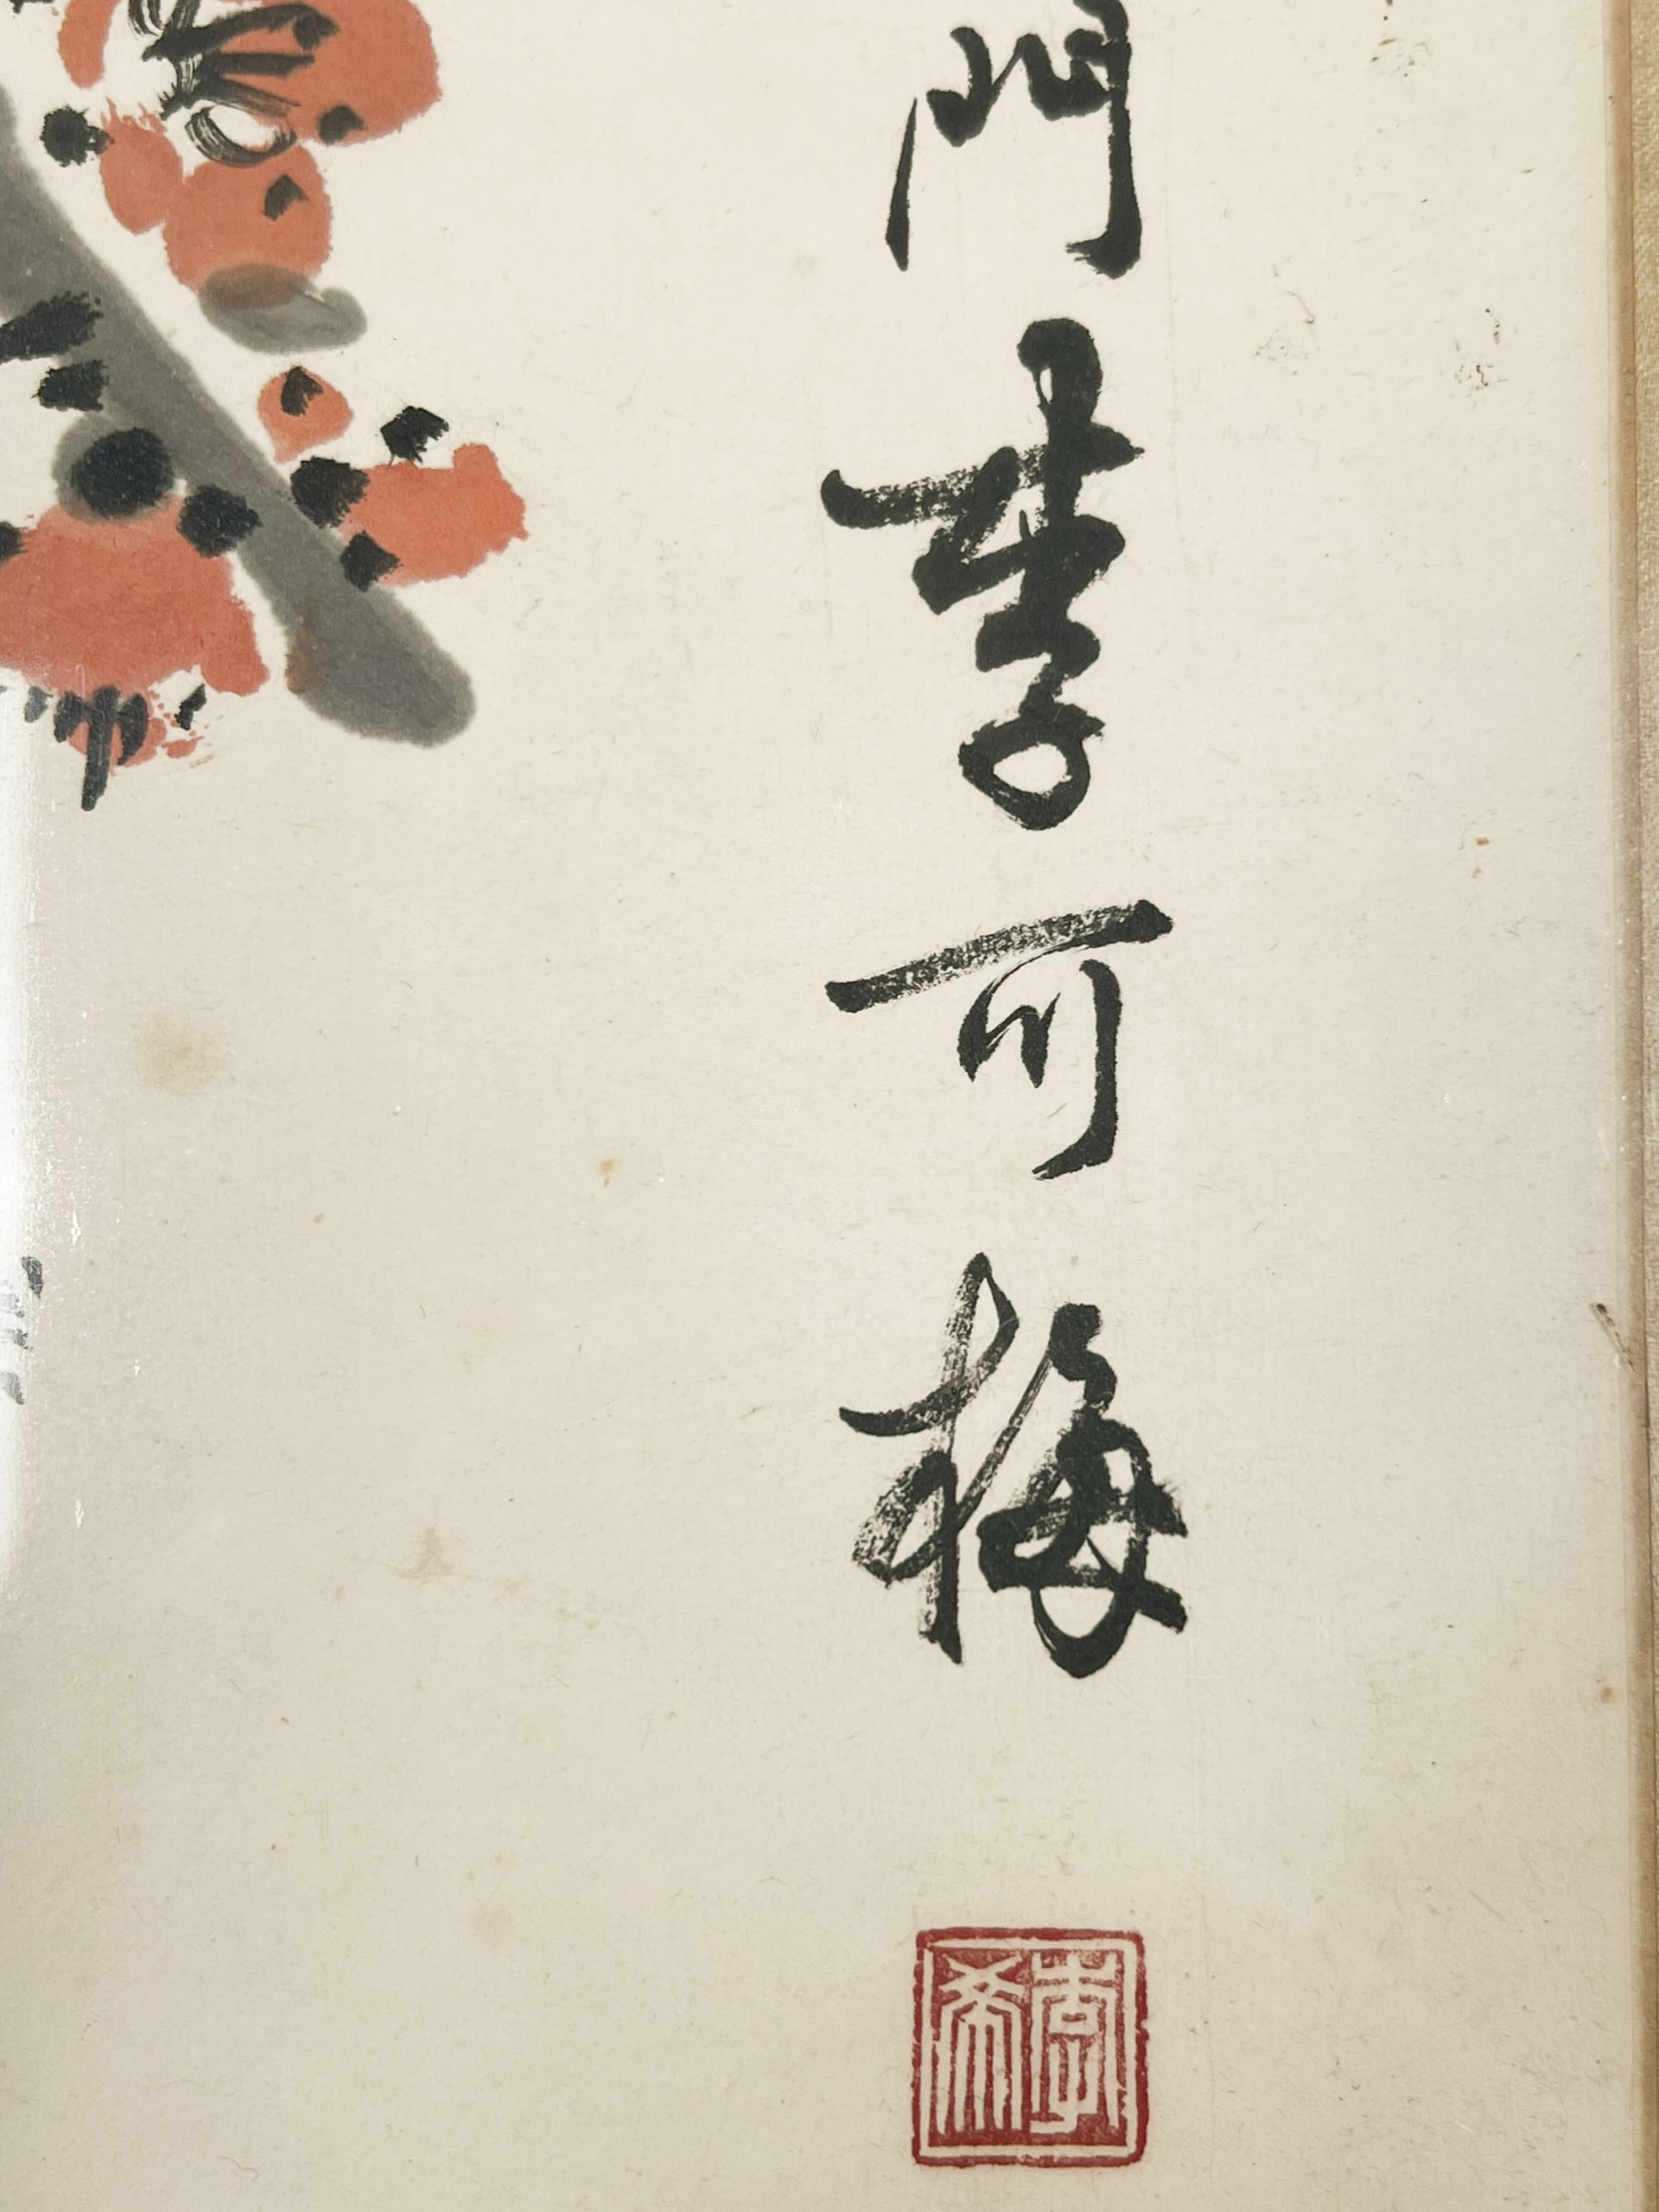 門李可梅